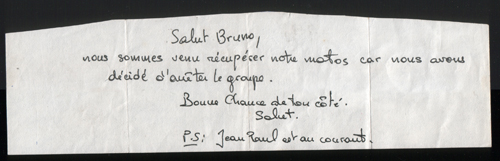 Salut Bruno,
nous sommes venu récupérer notre matos car nous avons
décidé d'arrêter le groupe.
Bonne Chance de ton côté.
Salut.
P.S: Jean Paul est au courant.